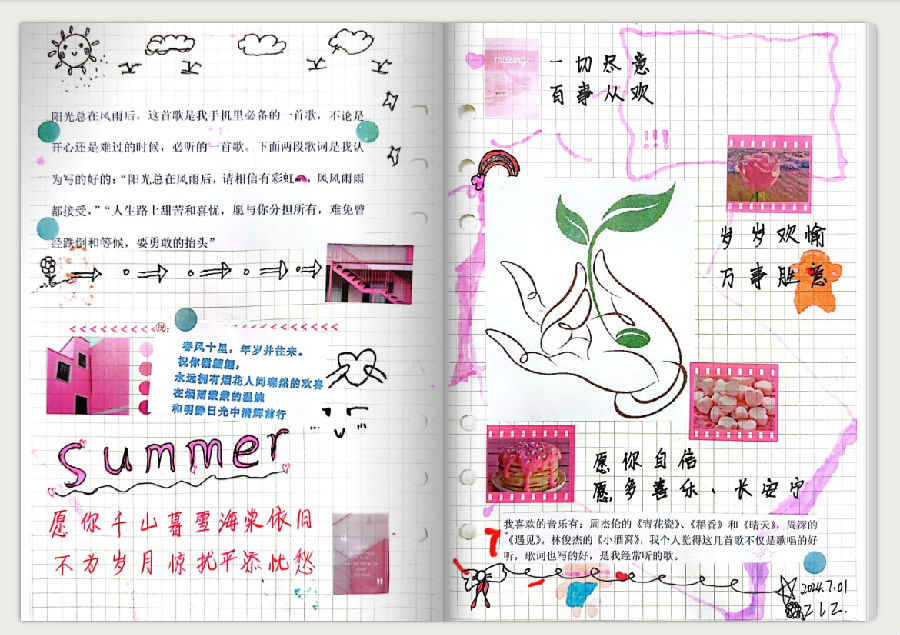 阳光总在风雨后，这首歌是我手机里必备的一首歌，不论是
开心还是难过的时候，必听的一首歌。下面两段歌词是我认
为写的好的：“阳光总在风雨后，请相信有彩虹，风风雨雨
都接受，”“人生路上甜苦和喜忧，愿与你分担所有，难免曾
经跌倒和等候，要勇敢的抬头”
祝：
春风十里，年岁并往来。
祝你
永远拥有烟花人间骤然的欢喜
在烟雨朦胧的温婉
和明静日光中清辉前行
Summer
愿你千山暮雪海棠依旧
不为岁月惊扰平添忧愁
missing
一切尽意
百事从欢
!!!
岁岁欢愉
万事胜意
愿你自信
愿多喜乐、长安宁
我喜欢的音乐有：周杰伦的《青花瓷》、《稻香》和《晴天》，周深的
《遇见》，林俊杰的《小酒窝》，我个人觉得这几首歌不仅是歌唱的好
听，歌词也写的好，是我经常听的歌。
2024.7.01
ZLZ.